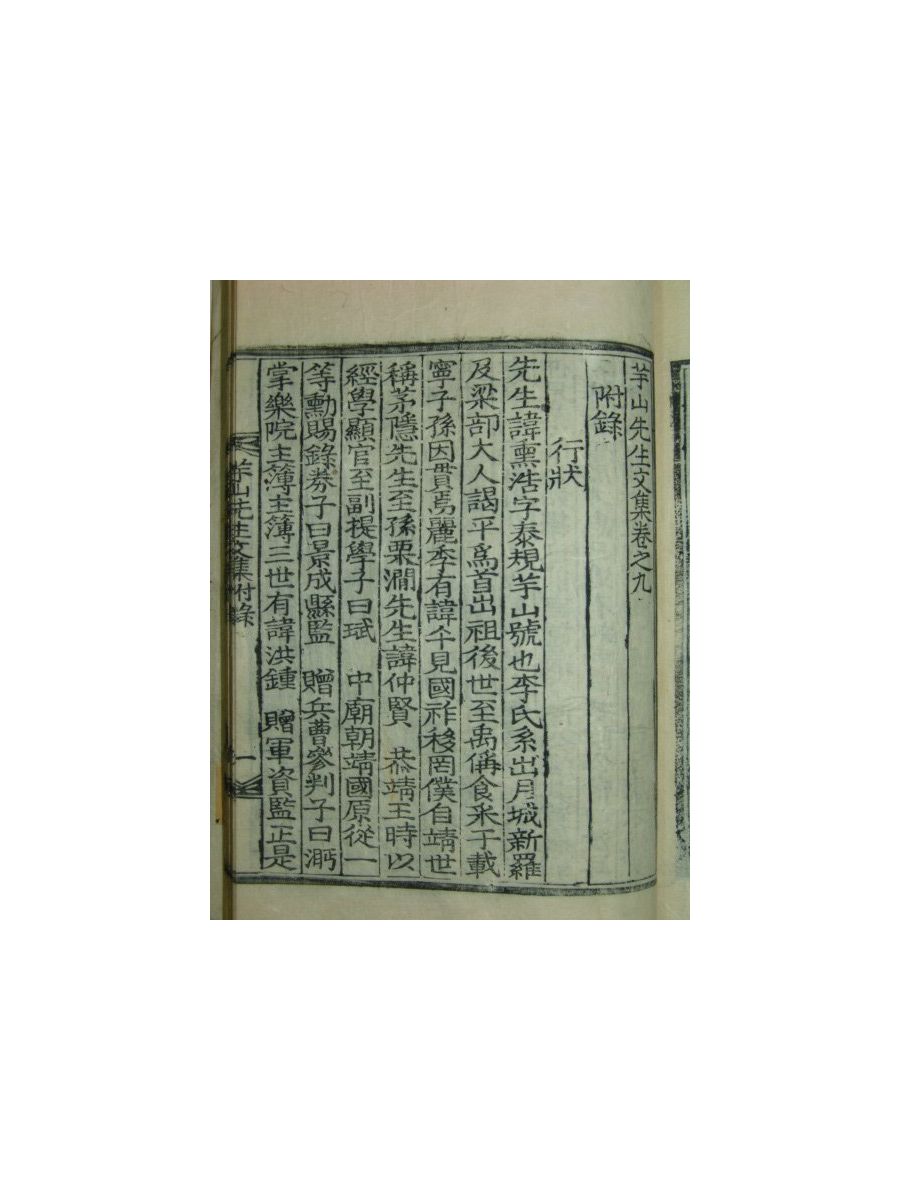 芋山先生文集卷之九
附錄
行狀
先生諱熏浩字泰規芋山號也李氏系出月城新羅
及梁部大人謁平爲首出祖後世至禹偁食采于載
寧子孫因貫焉麗季有諱午見國祚移罔僕自靖世
稱茅隱先生至孫栗澗先生諱仲賢 恭靖王時以
經學顯官至副提學子曰珷 中廟朝靖國原從一
等勳賜錄券子曰景成縣監 贈兵曹參判子曰
掌樂院主簿主簿三世有諱洪鍾 贈軍資監正是
芋山先生文集附錄 一